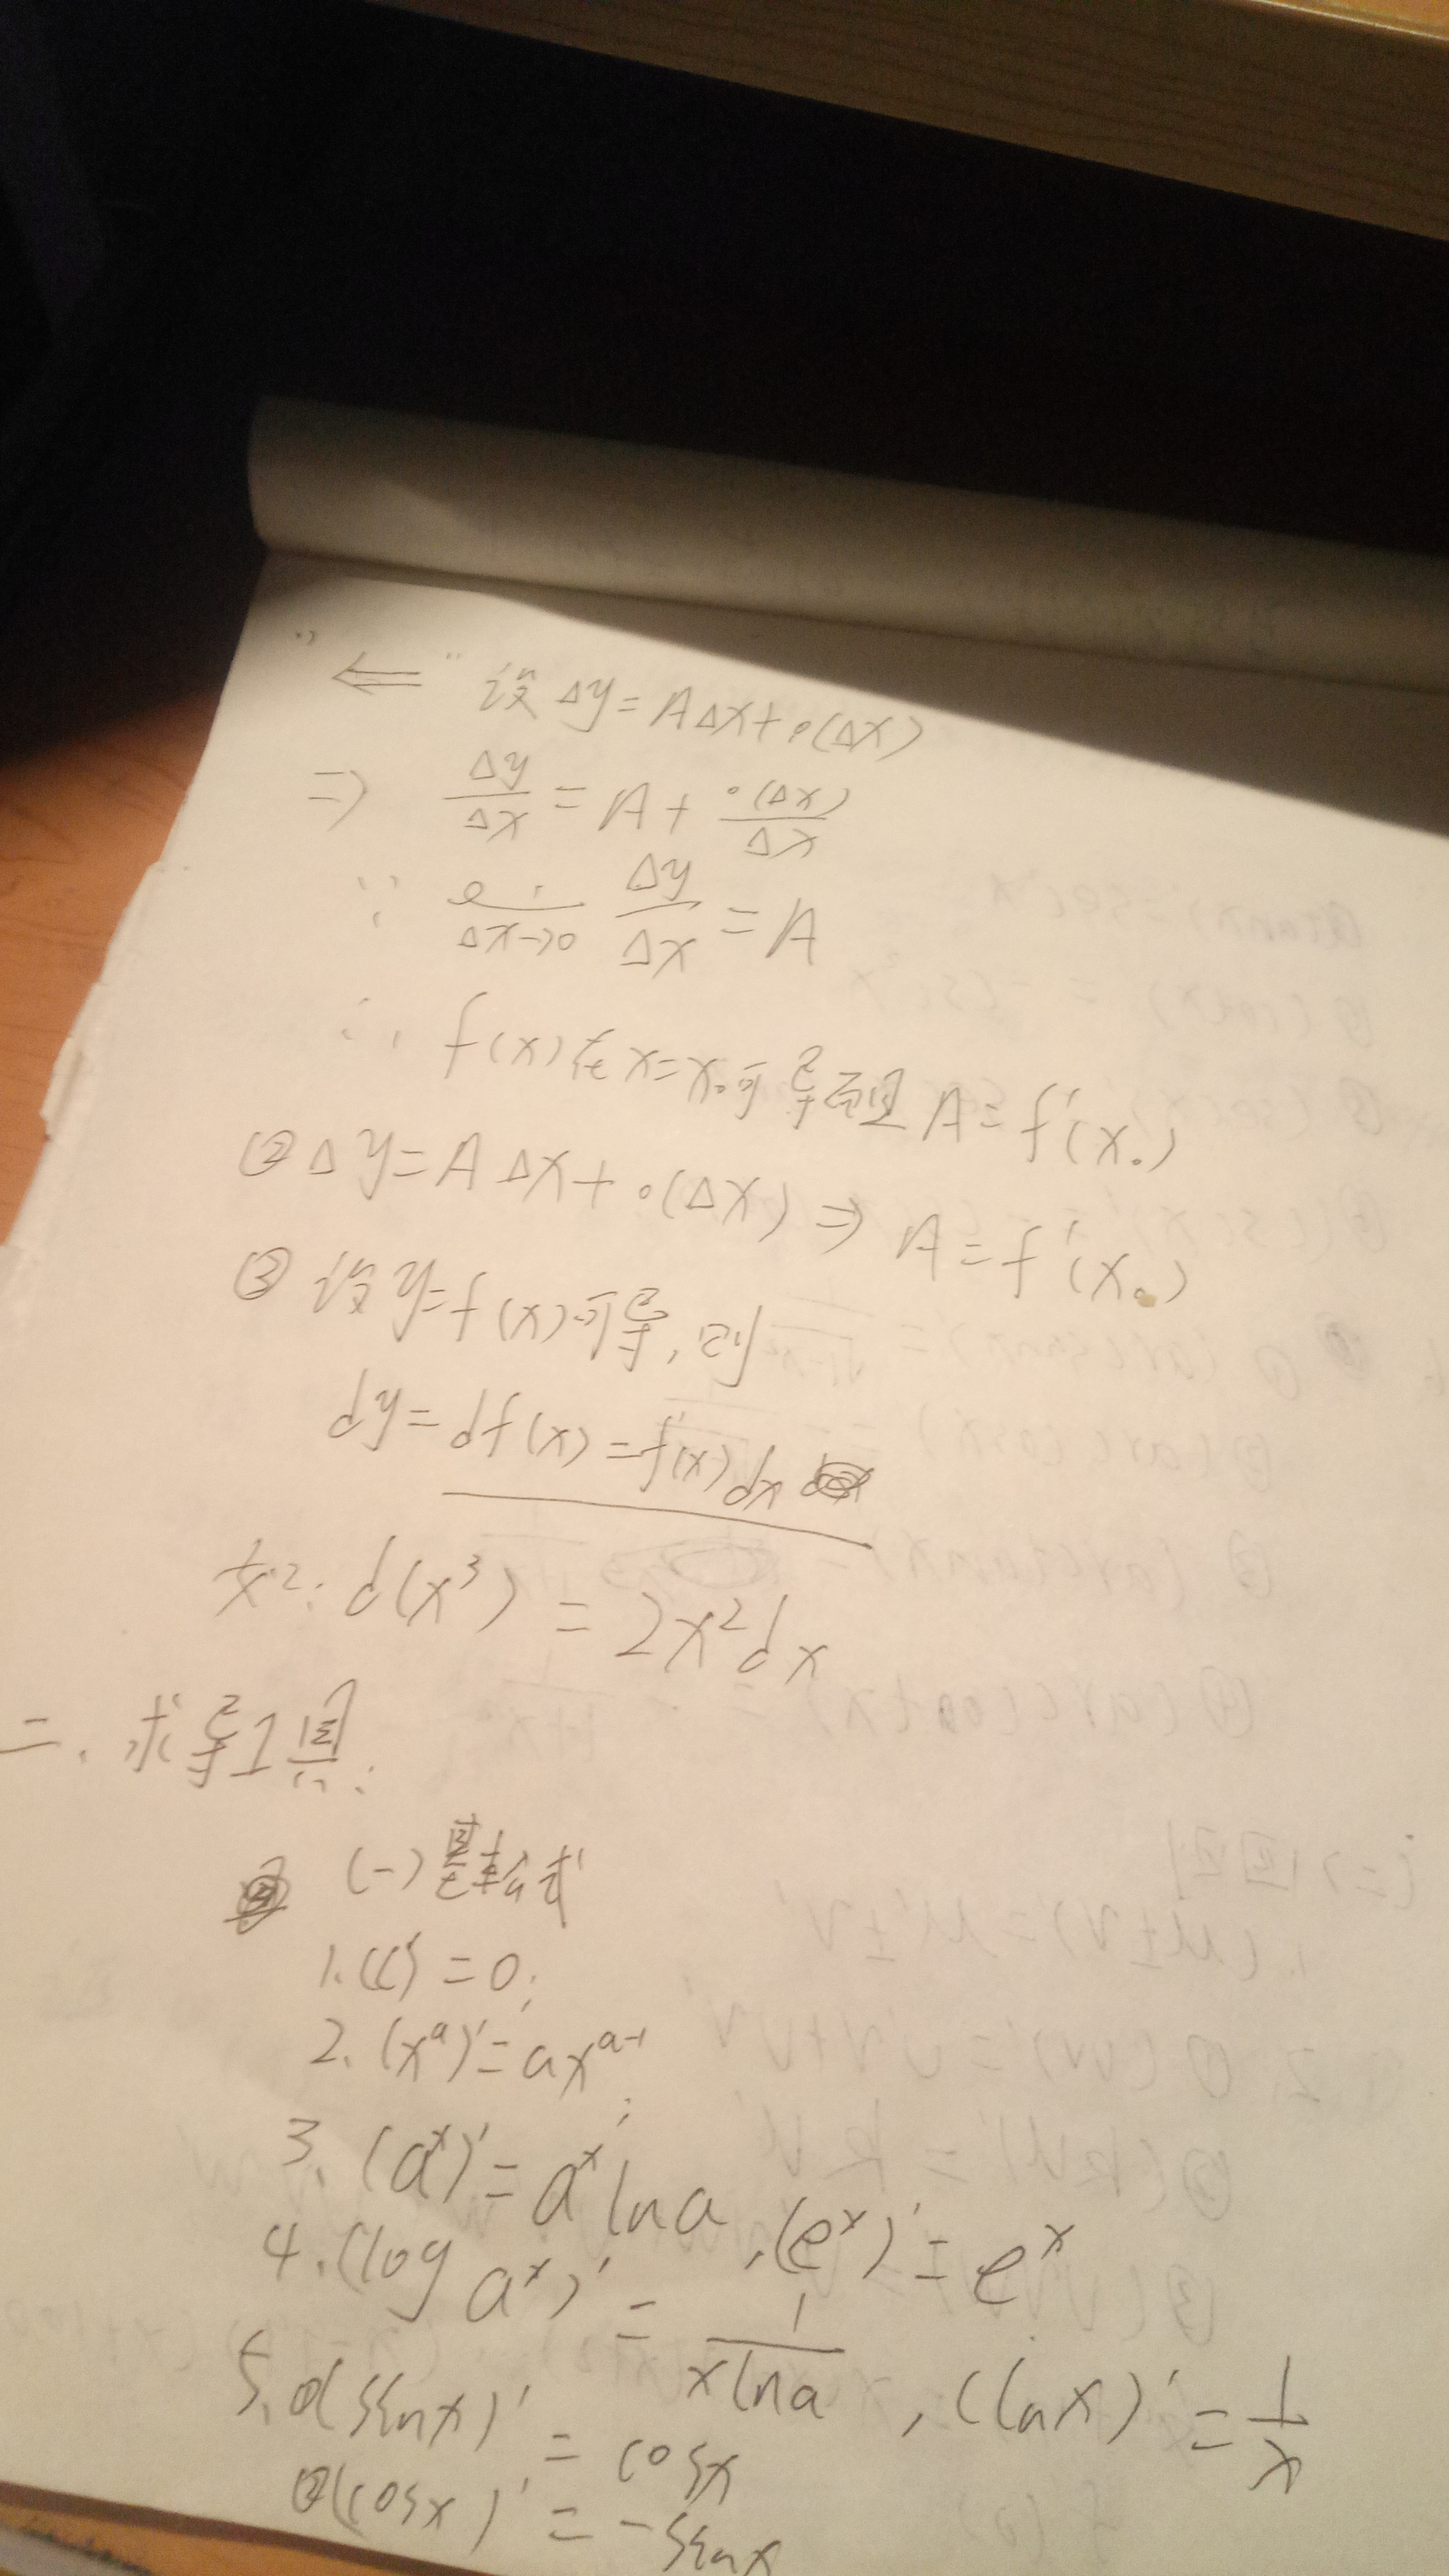 "⇐" 设 Δy=AΔx+o(Δx)
⇒ Δy/Δx = A + o(Δx)/Δx
∵ lim Δx→0 Δy/Δx = A
∴ f(x)在x=x₀可导而且A=f'(x₀)
② Δy=AΔx+o(Δx) ⇒ A=f'(x₀)
③ 设y=f(x)可导,则
dy=df(x)=f'(x)dx
如: d(x³)=2x²dx
二、求导工具:
(一)基本公式
1. (c)'=0;
2. (xᵃ)'=axᵃ⁻¹;
3. (aˣ)'=aˣlna, (eˣ)'=eˣ
4. (log aˣ)'=1/(xlna), (lnx)'=1/x
5. ①(sinx)'=cosx
②(cosx)'=-sinx